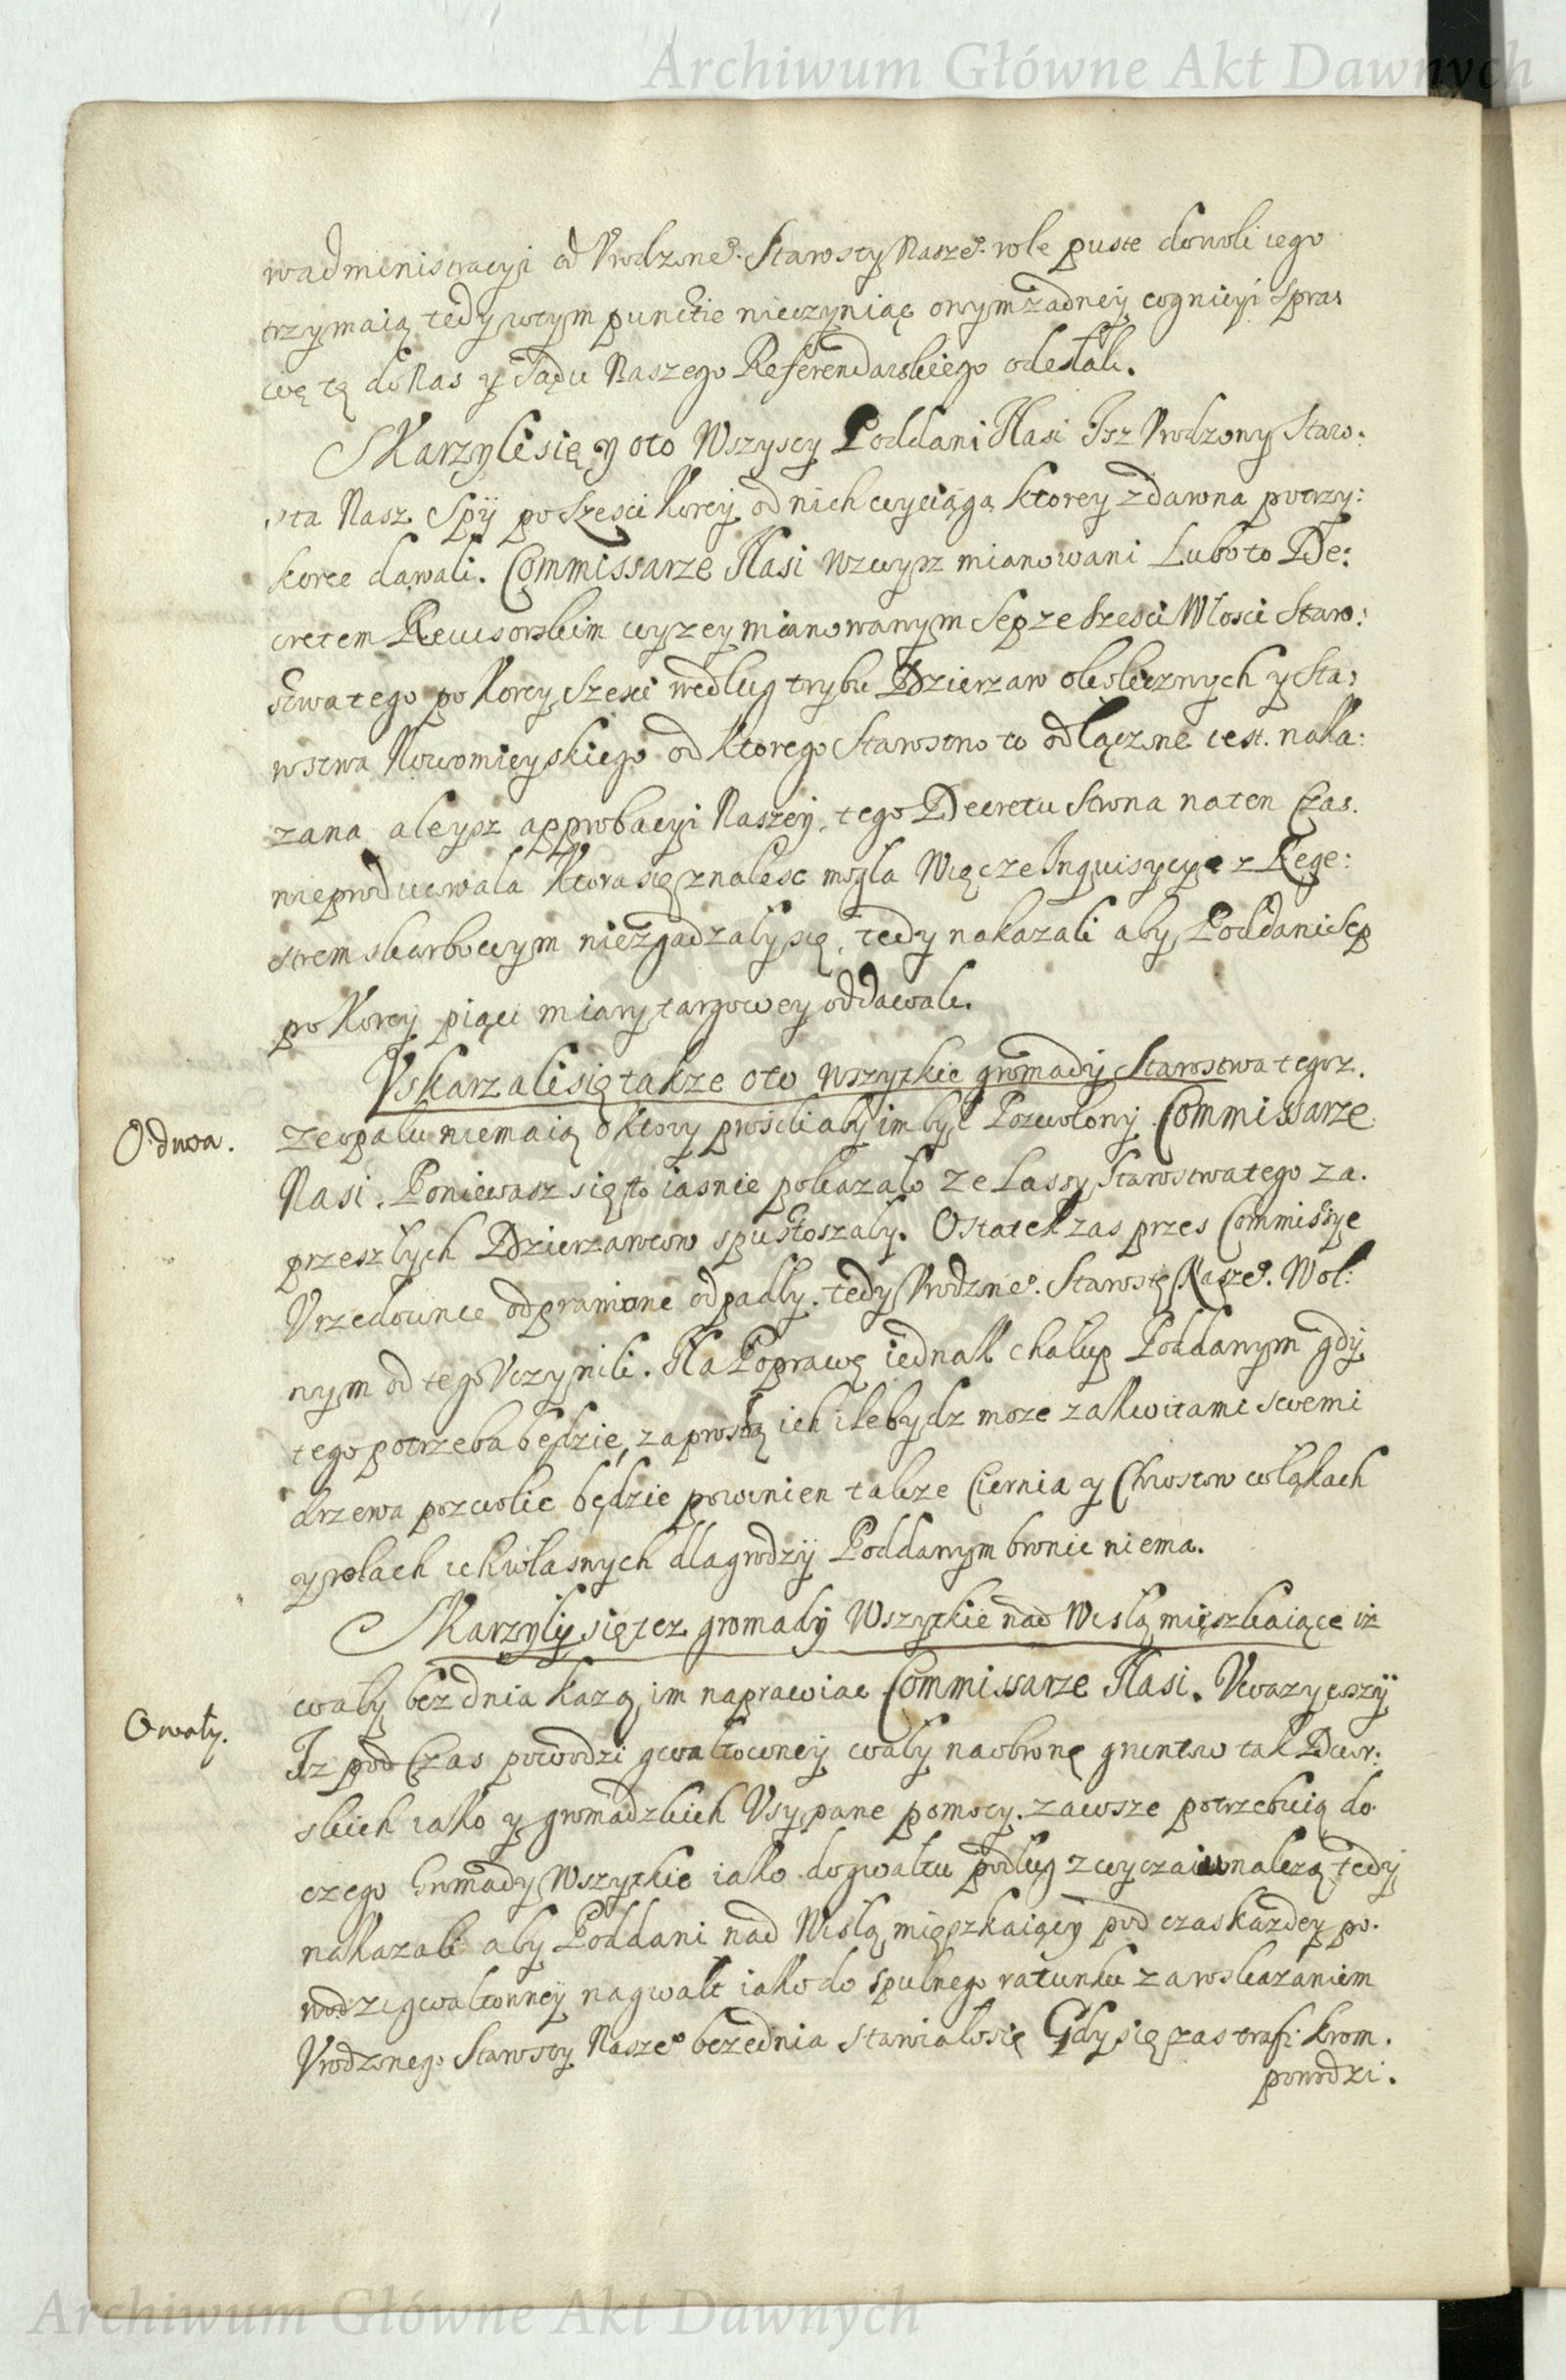 Archiwum Główne Akt Dawnych
wadministracyi od Vrodzone͡o. Starosty Nasze͡o. role puste dowoli tego
trzymaią tedy wtym punctie nieczyniąc onym zadney cognicyi spra:
wę tę do Nas y Sądu Naszego Referendarskiego odesłali.
Skarzyli się y oto Wszyscy Poddani Nasi Isz Vrodzony Staro:
sta Nasz Spÿ po szesci Korcy od nich wyciąga ktorey zdawna potrzy:
korce dawali. Commissarze Nasi wzwysz mianowani Lubo to De:
cretem Rewisorskim wyzey mianowanym Sep ze szesci Włosci Staro:
stwa tego po Korcy szesci według trybu Dzierzaw okolicznych y Sta:
wstwa Nowomieyskiego od ktorego Starostwo to odłączone iest. naka:
zana aleysz approbacyi Naszey, tego Decretu Strona naten Czas.
nieproducowala Ktora się znalesc mogla Więc ze Inquisycye z Rege:
strem skarbowym niezgadzały się, tedy nakazali aby Poddani Sep
po Korcy pięci miary targowey oddawali.
Vskarzali się takze oto wszytkie gromady Starostwa tegoz.
O drwa.
ze opału niemaią o ktory prosili aby im był Pozwolony Commissarze
Nasi. Poniewasz się to iasnie pokazało ze Lassy Starostwa tego za.
przeszłych Dzierzawcow spustoszały. Ostatek zas przes Commissye
Vrzedownie odprawione odpadły. tedy Vrodzone͡o. Starostę Nasze͡o. Wol:
nym od tego Vczynili. Na Poprawę iednak chałup Poddanym gdy
tego potrzeba będzie, za prosbą ich ile bydz moze zakwitami swemi
drzewa pozwolic będzie powinien takze Ciernia y Chrostow w łąkach
y rolach ich własnych dla grodzÿ Poddanym bronic niema.
Skarzyly się tez gromady Wszytkie nad Wisłą mięszkaiące iż
O wały.
wały bez dnia kazą im naprawiac Commissarze Nasi. Vwazywszÿ
Iz pod Czas powodzi gwałtowney wały na obronę gruntow tak Dwor:
skich iako y gromadzkich Vsypane pomocy. zawsze potrzebuią do
czego Gromady Wszytkie iako do gwałtu podług zwyczaiu nalezą tedy
nakazali aby Poddani nad Wisłą mięszkaiący pod czas kazdey po.
wodzi gwałtowney na gwałt iako do spulnego ratunku za wskazaniem
Vrodzonego Starosty Nasze͡o bezednia stawiało się Gdy się zas trafi krom.
powodzi.
Archiwum Główne Akt Dawnych